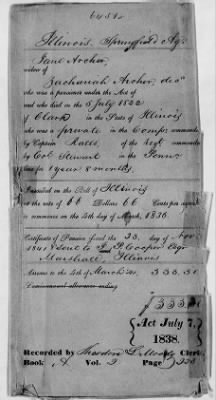 6454
Illinois, Springfield Agy.
Jane Archer,
widow of
Zachariah Archer, decd
who was a pensioner under the Act of
and who died on the 8 July 1822
of Clark in the State of Illinois
who was a private in the Comp commanded
by Captain of the Regt commanded
by Col Stewart in the Penn
line for 1 year 8 months.
Inscribed on the Roll of Illinois
at the rate of 66 Dollars 66 Cents per annum,
to commence on the 4th day of March, 1836.
Certificate of Pension issued the 23 day of Nov
1841 & sent to Cooper Esqr
Marshall, Illinois
Arrears to the 4th of March 41 333.30
Semi-annual allowance ending
$ 333.30
Act July 7,
1838.
Recorded by Clerk,
Book A Vol. 2 Page 238